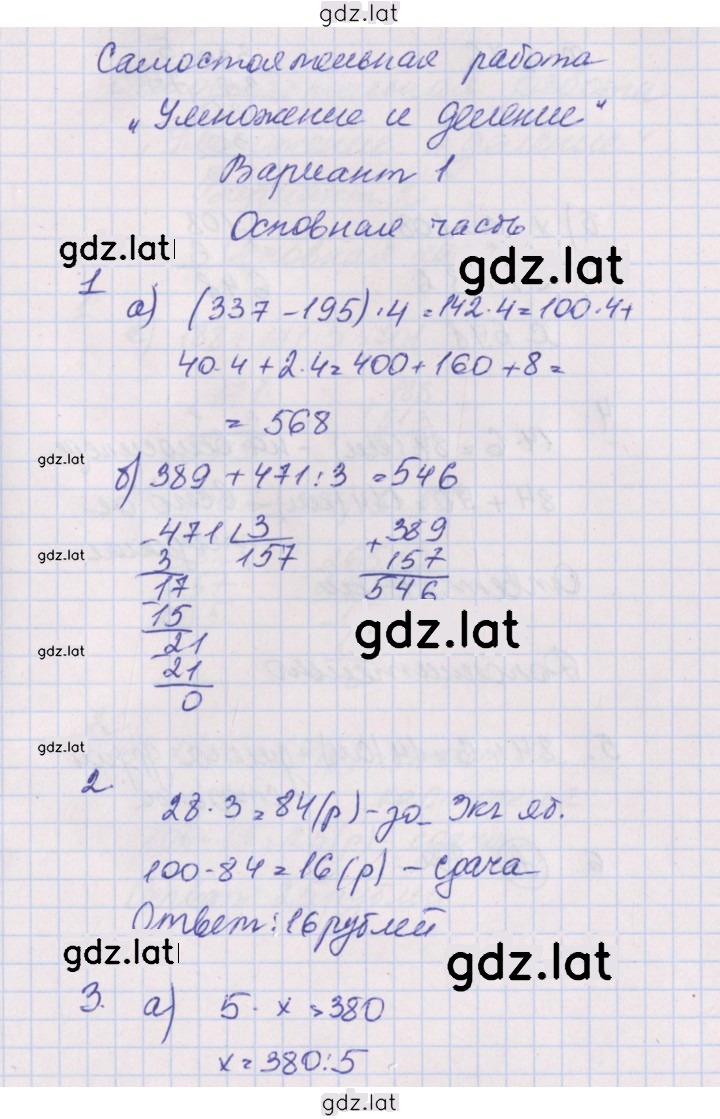 gdz.lat
Самостоятельная работа
„Умножение и деление“
Вариант 1
Основная часть
gdz.lat
gdz.lat
1
а) (337 - 195) · 4 = 142 · 4 = 100 · 4 +
40 · 4 + 2 · 4 = 400 + 160 + 8 =
= 568
gdz.lat
б) 389 + 471 : 3 = 546
- 471 3
3 157
17
15
21
21
0
+ 389
157
546
gdz.lat
gdz.lat
gdz.lat
gdz.lat
2.
28 · 3 = 84 (р) - за 3 кг яб.
100 - 84 = 16 (р) - сдача
Ответ: 16 рублей
gdz.lat
gdz.lat
3. а) 5 · x = 380
x = 380 : 5
gdz.lat